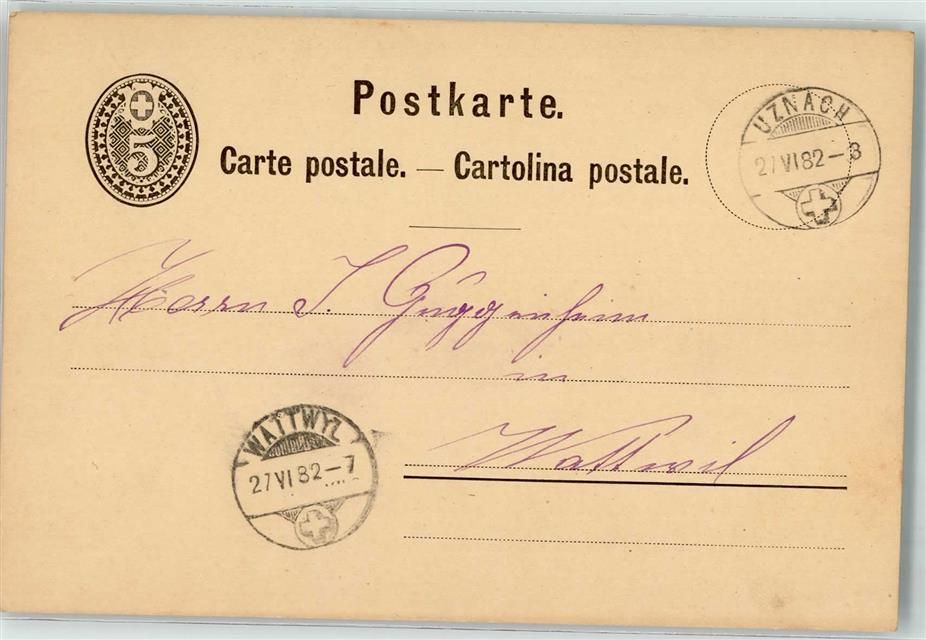 5
Postkarte.
Carte postale. — Cartolina postale.
UZNACH
27 VI 82 – 8
Herrn J. Guggenheim
in
Wattwil
WATTWYL
27 VI 82 – 7